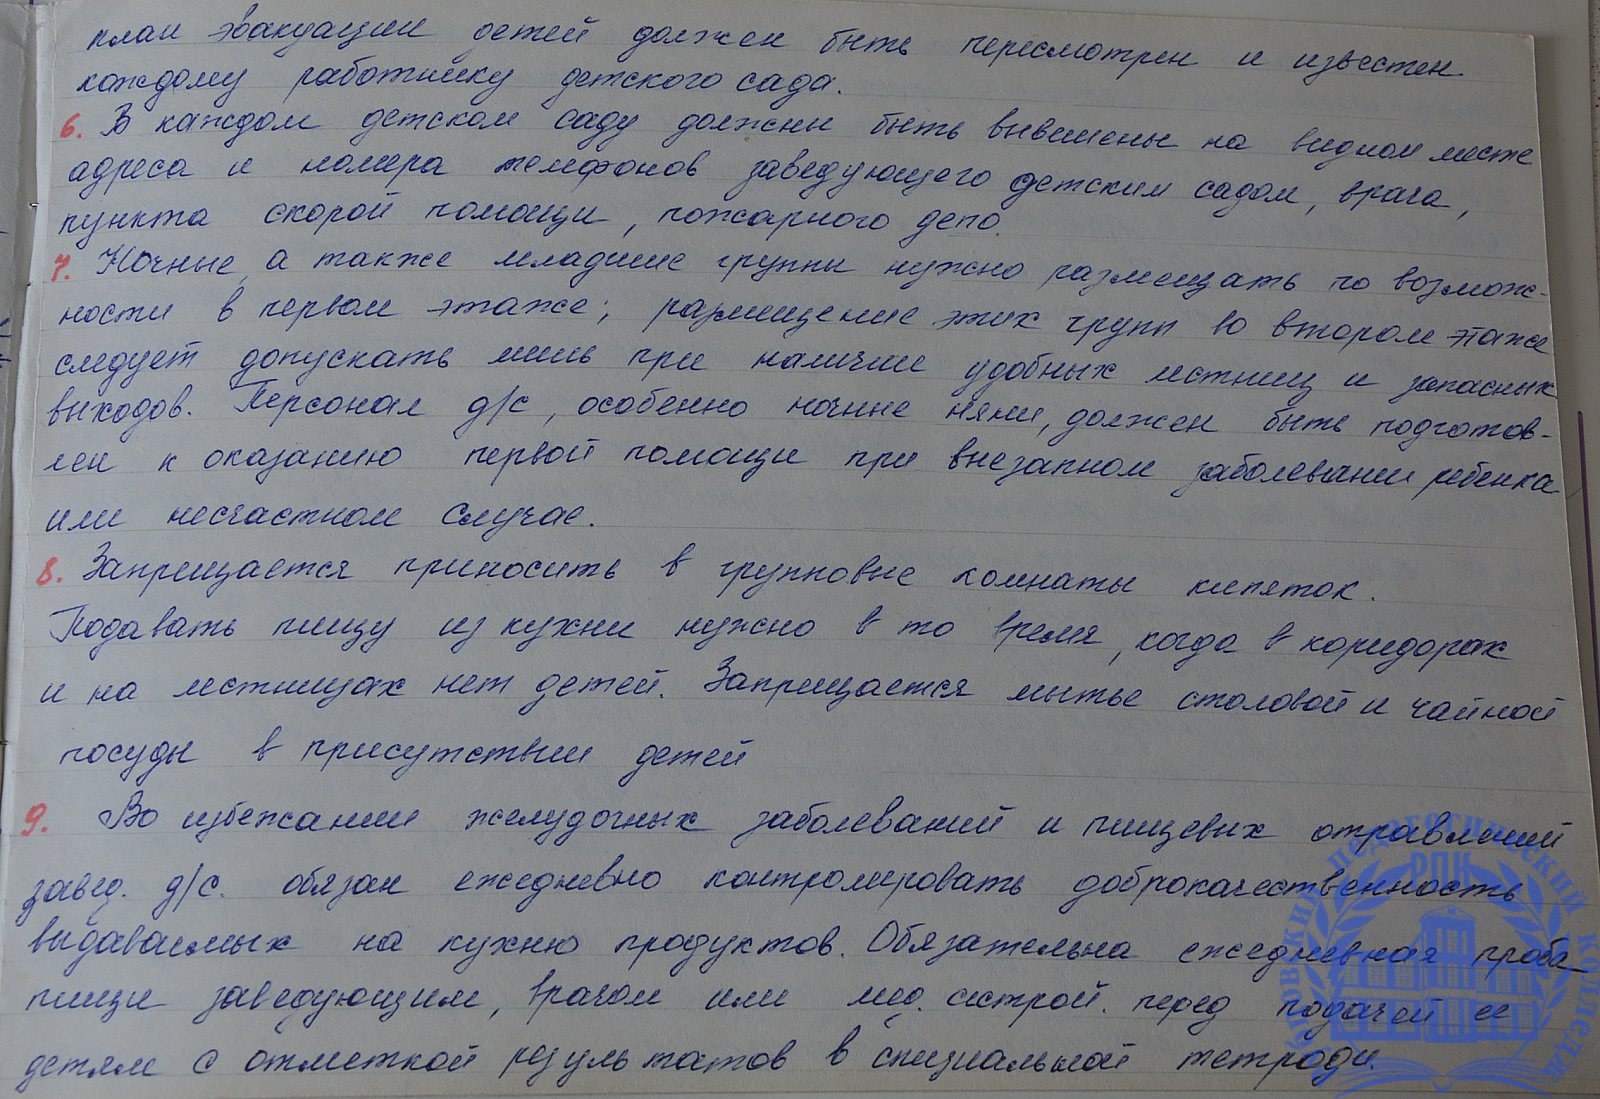 план эвакуации детей должен быть пересмотрен и известен
каждому работнику детского сада.
6. В каждом детском саду должны быть вывешены на видном месте
адреса и номера телефонов заведующего детским садом, врача,
пункта скорой помощи, пожарного депо.
7. Ночные, а также младшие группы нужно размещать по возмож-
ности в первом этаже; размещение этих групп во втором этаже
следует допускать лишь при наличие удобных лестниц и запасных
выходов. Персонал д/с, особенно ночные няни, должен быть подготов-
лен к оказанию первой помощи при внезапном заболевании ребенка
или несчастном случае.
8. Запрещается приносить в групповые комнаты кипяток.
Подавать пищу из кухни нужно в то время, когда в коридорах
и на лестницах нет детей. Запрещается мытье столовой и чайной
посуды в присутствии детей
9. Во избежании желудочных заболеваний и пищевых отравлений
завед. д/с. обязан ежедневно контролировать доброкачественность
выдаваемых на кухню продуктов. Обязательна ежедневная проба
пищи заведующим, врачом или мед. сестрой. перед подачей ее
детям с отметкой результатов в специальной тетради.
педагогический колледж
РПК